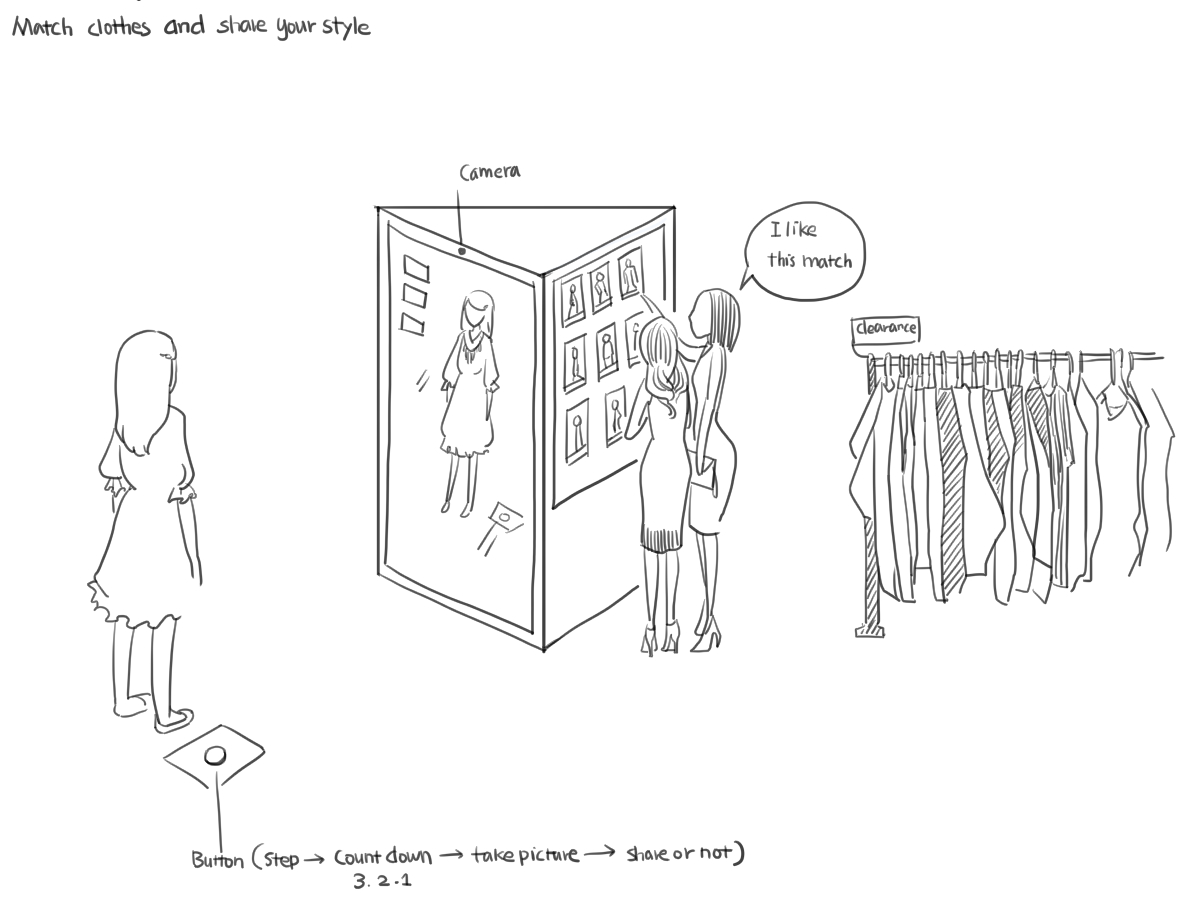 Match clothes and share your style
Camera
I like
this match
clearance
Button (Step → Count down → take picture → share or not)
3. 2. 1